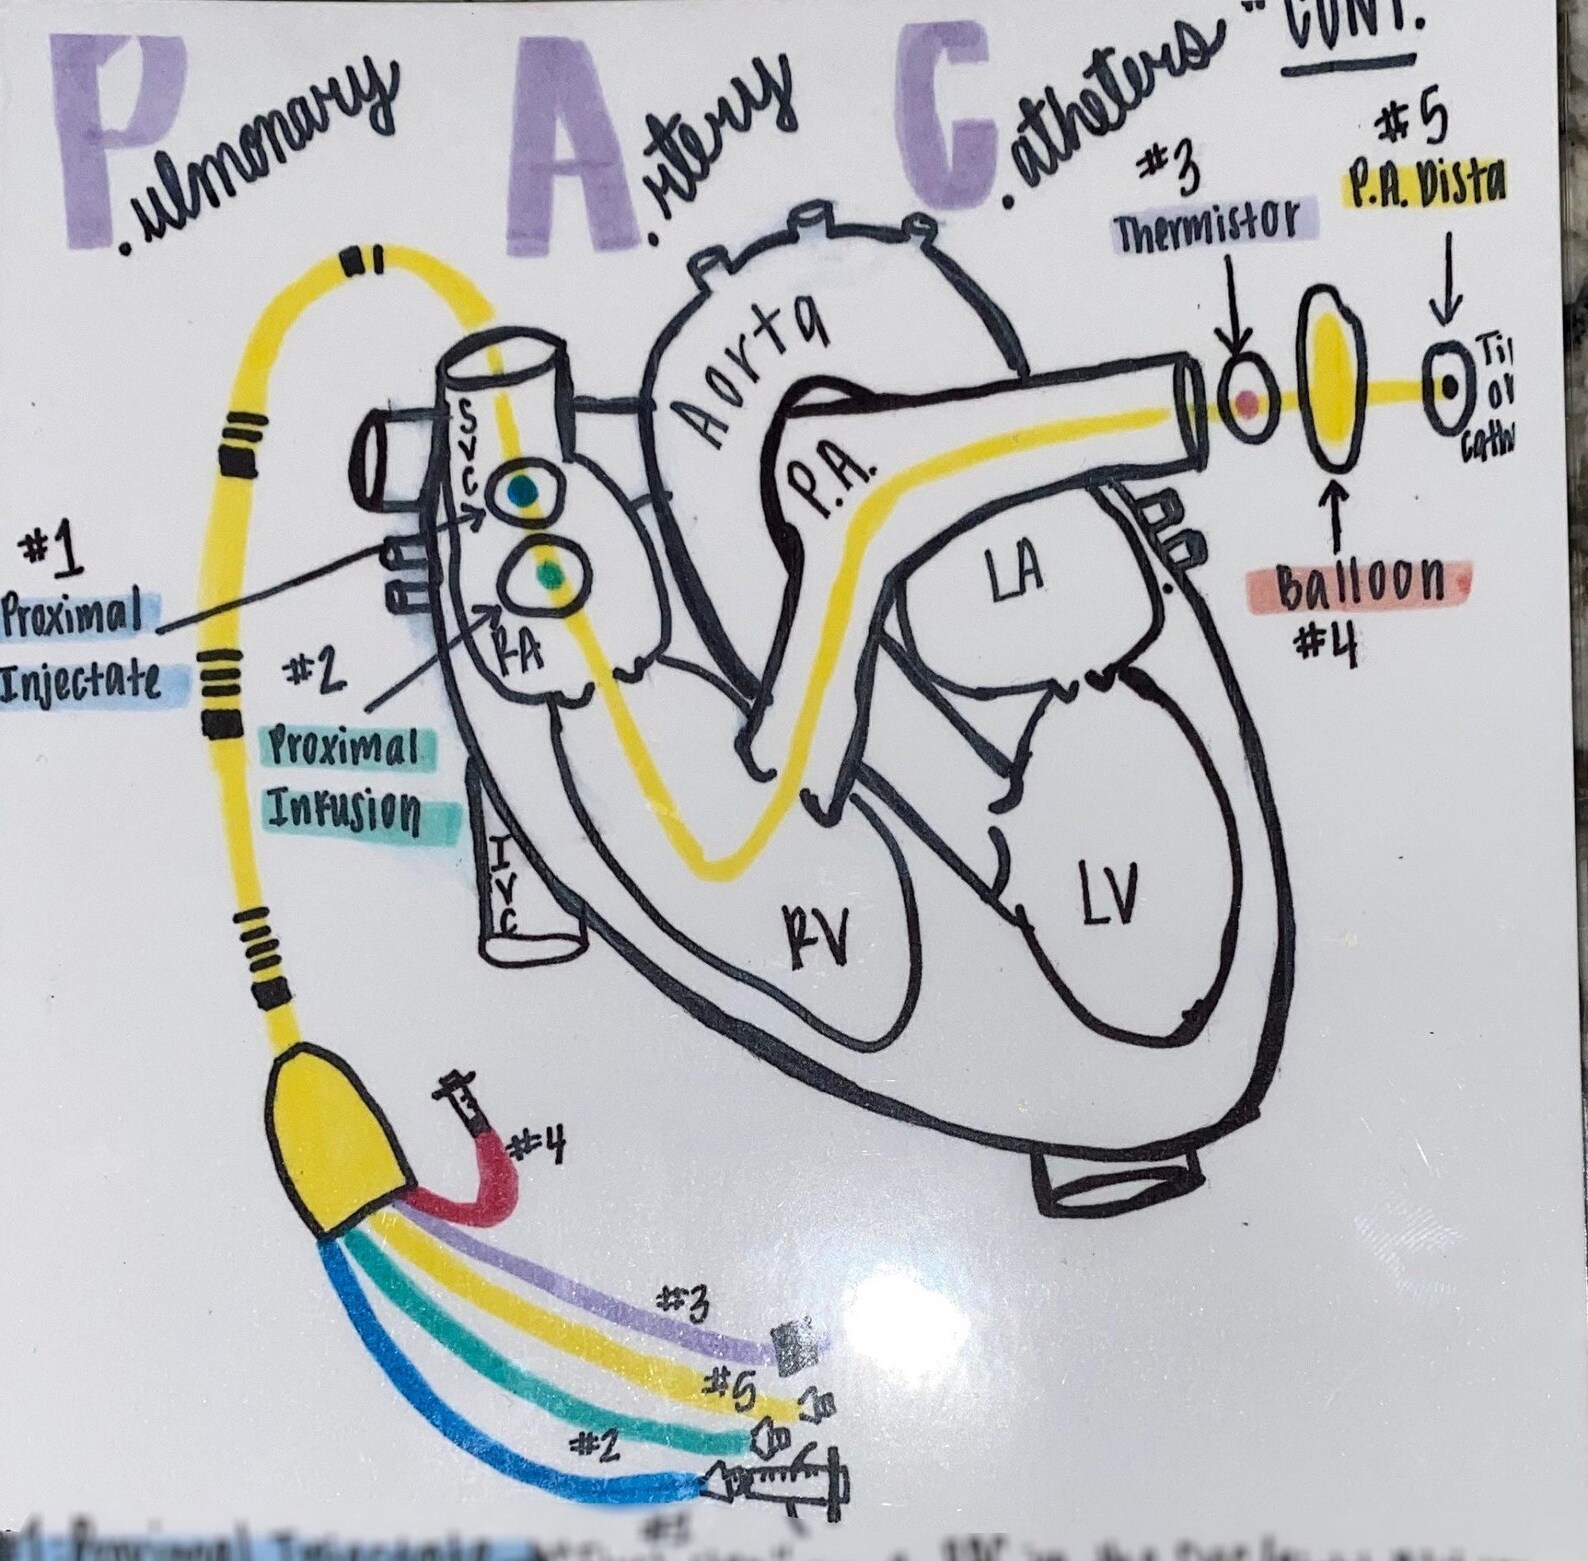 P.ulmonary A.rtery C.atheters " CONT.
#3
Thermistor
#5
P.A. Dista
Aorta
SVC
P.A.
Til
or
cath
#1
Proximal
Injectate
#2
Proximal
Infusion
RA
LA
Balloon
#4
IVC
RV
LV
#4
#3
#5
#2
#1
#1-Proximal Injectate